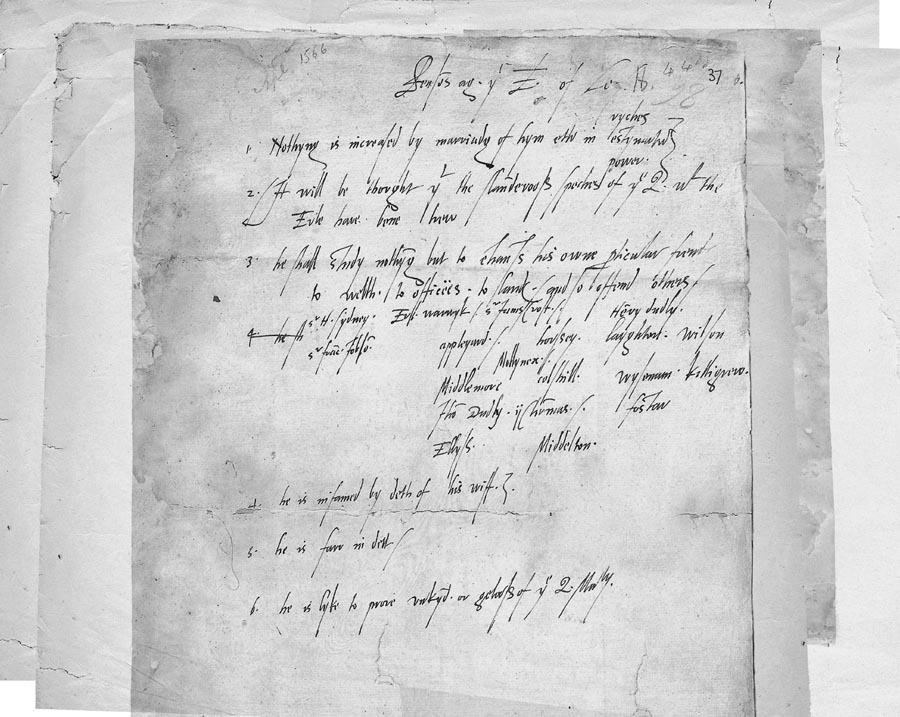 1566
37
Reasons ag. yᵉ E. of Le.
ryches
1. Nothyng is increased by marriadg of hym eth{r} in estymatiō
power.
2. It will be thought yᵗ the slanderooss speches of yᵉ Q. wᵗ the
Erle have bene trew
3. he shall study nothyng but to enhanss his owne pticular frends
to welth. to offices. to lands. and so offend others
Sʳ H. Sydney. Erl. warwyk Sʳ James Croft. Hēry dudly.
Sʳ Frāc. Jobsō. appleyard. horsey. Leyghton. Wilson
Mollynex.
Middlemore colshill. Wyseman. killigrew.
Jhō Dudly. ij Christmas. fostar
Ellyss. Middelton.
4. he is infamed by deth of his wiff.
5. he is farr in dett
6. he is lyke to prove vnkȳd. or gelooss of yᵉ Q. Maᵗʸ.